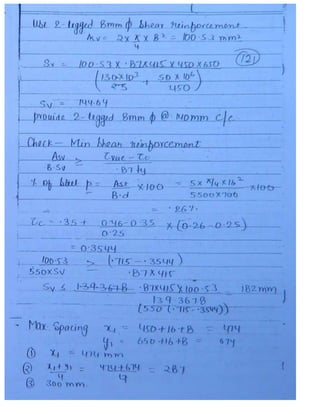 Use 2-legged 8mm ϕ shear reinforcement.
Asv = 2 × π/4 × 8² = 100.53 mm²
(121)
Sv = 100.53 × .87×415 × 450 × 650
(130×10³/2.5 + 50×10⁶/450)
Sv = 144.64
provide 2-legged 8mm ϕ @ 140mm c/c
Check - Min shear reinforcement
Asv/B.Sv ≥ τve - τc/.87 fy
% of steel p = Ast/B.d × 100 = 5 × π/4 × 16²/5500×700 × 100
= .26%
τc = .35 + 0.46-0.35/0.25 × (0.26-0.25)
= 0.3544
100.53/550×SV ≥ (.715 - .3544)/.87×415
Sv ≤ .87×415 × 100.53 = 182mm
139.3678
(550 (.715-.3544))
- Max Spacing x₁ = 450+16+8 = 474
y₁ = 650+16+8 = 674
① x₁ = 474 mm
② x₁+y₁/4 = 474+674/4 = 287
③ 300 mm.